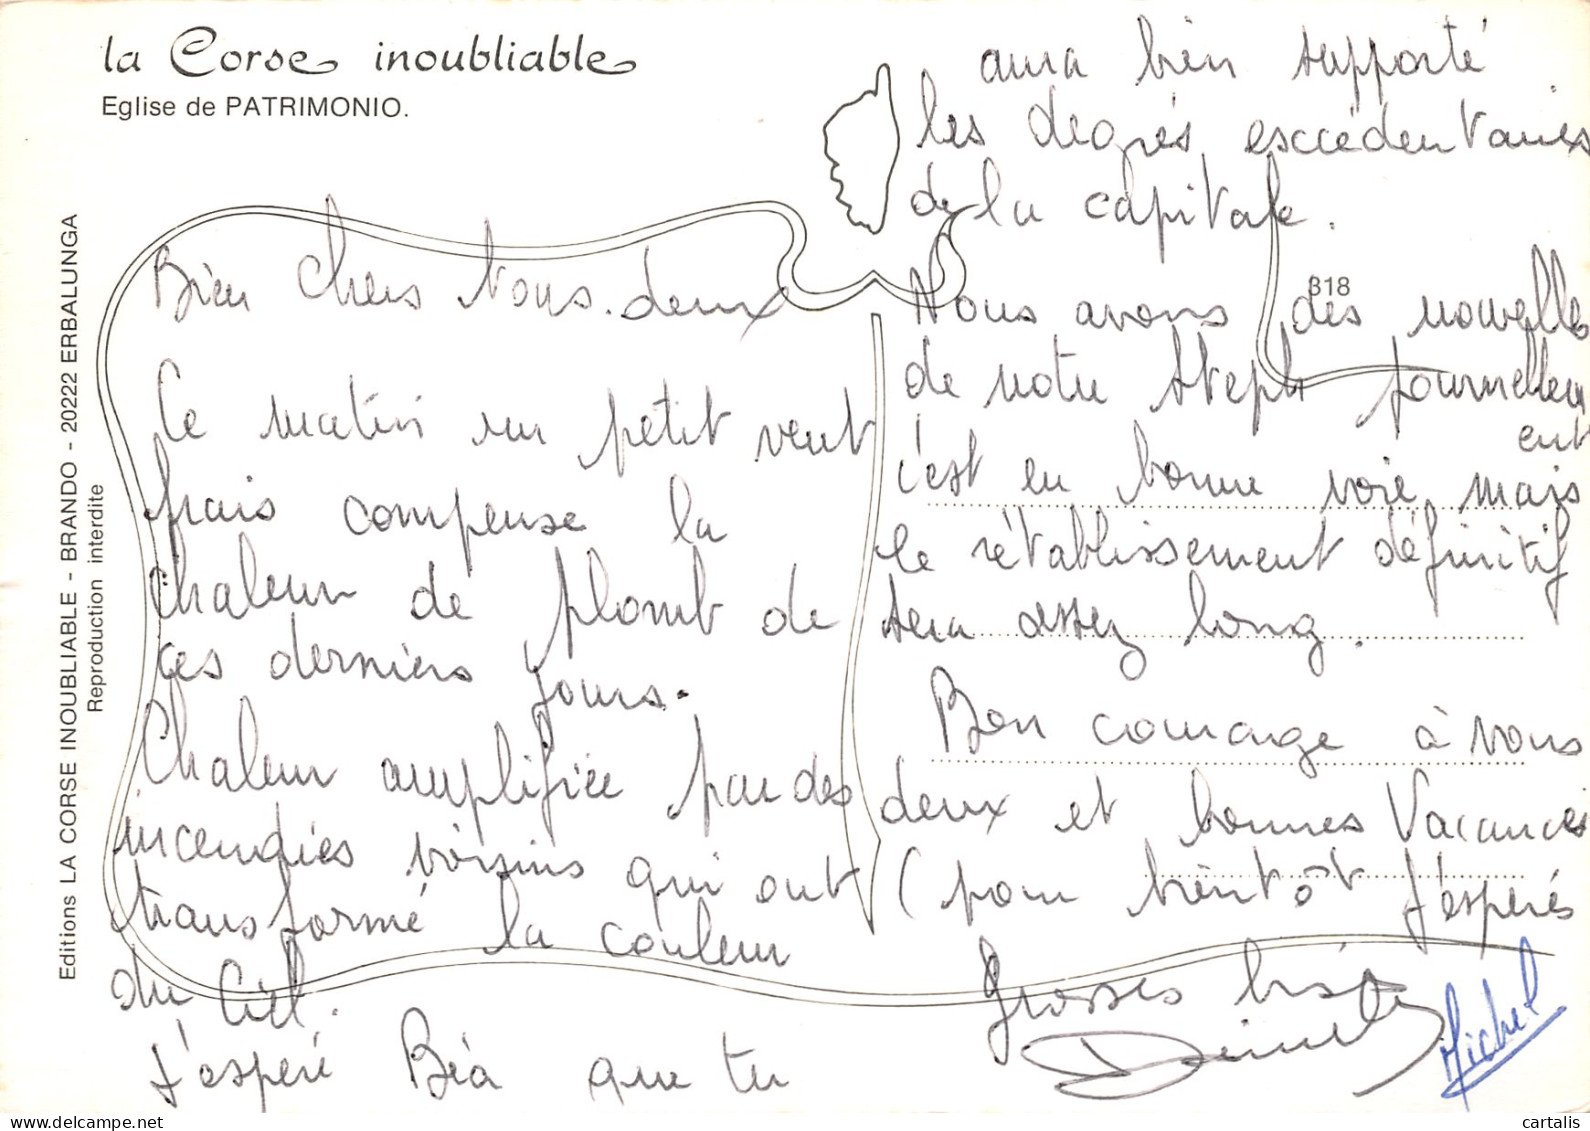 la Corse inoubliable
Eglise de PATRIMONIO.
Editions LA CORSE INOUBLIABLE - BRANDO - 20222 ERBALUNGA
Reproduction interdite
318
Bien chers vous. deux
Ce matin un petit vent
frais compense la
chaleur de plomb de
ces derniers jours.
Chaleur amplifiée par des
incendies voisins qui ont
transformé la couleur
du Ciel.
J'espère Béa que tu
aura bien supporté
les degrés exccédentaires
de la capitale.
Nous avons des nouvelles
de notre Steph journellem
ent
c'est en bonne voie mais
le rétablissement définitif
sera assez long.
Bon courage à vous
deux et bonnes Vacances
(pour bientôt j'espère
Grosses bises
Michel
cartalis
www.delcampe.net